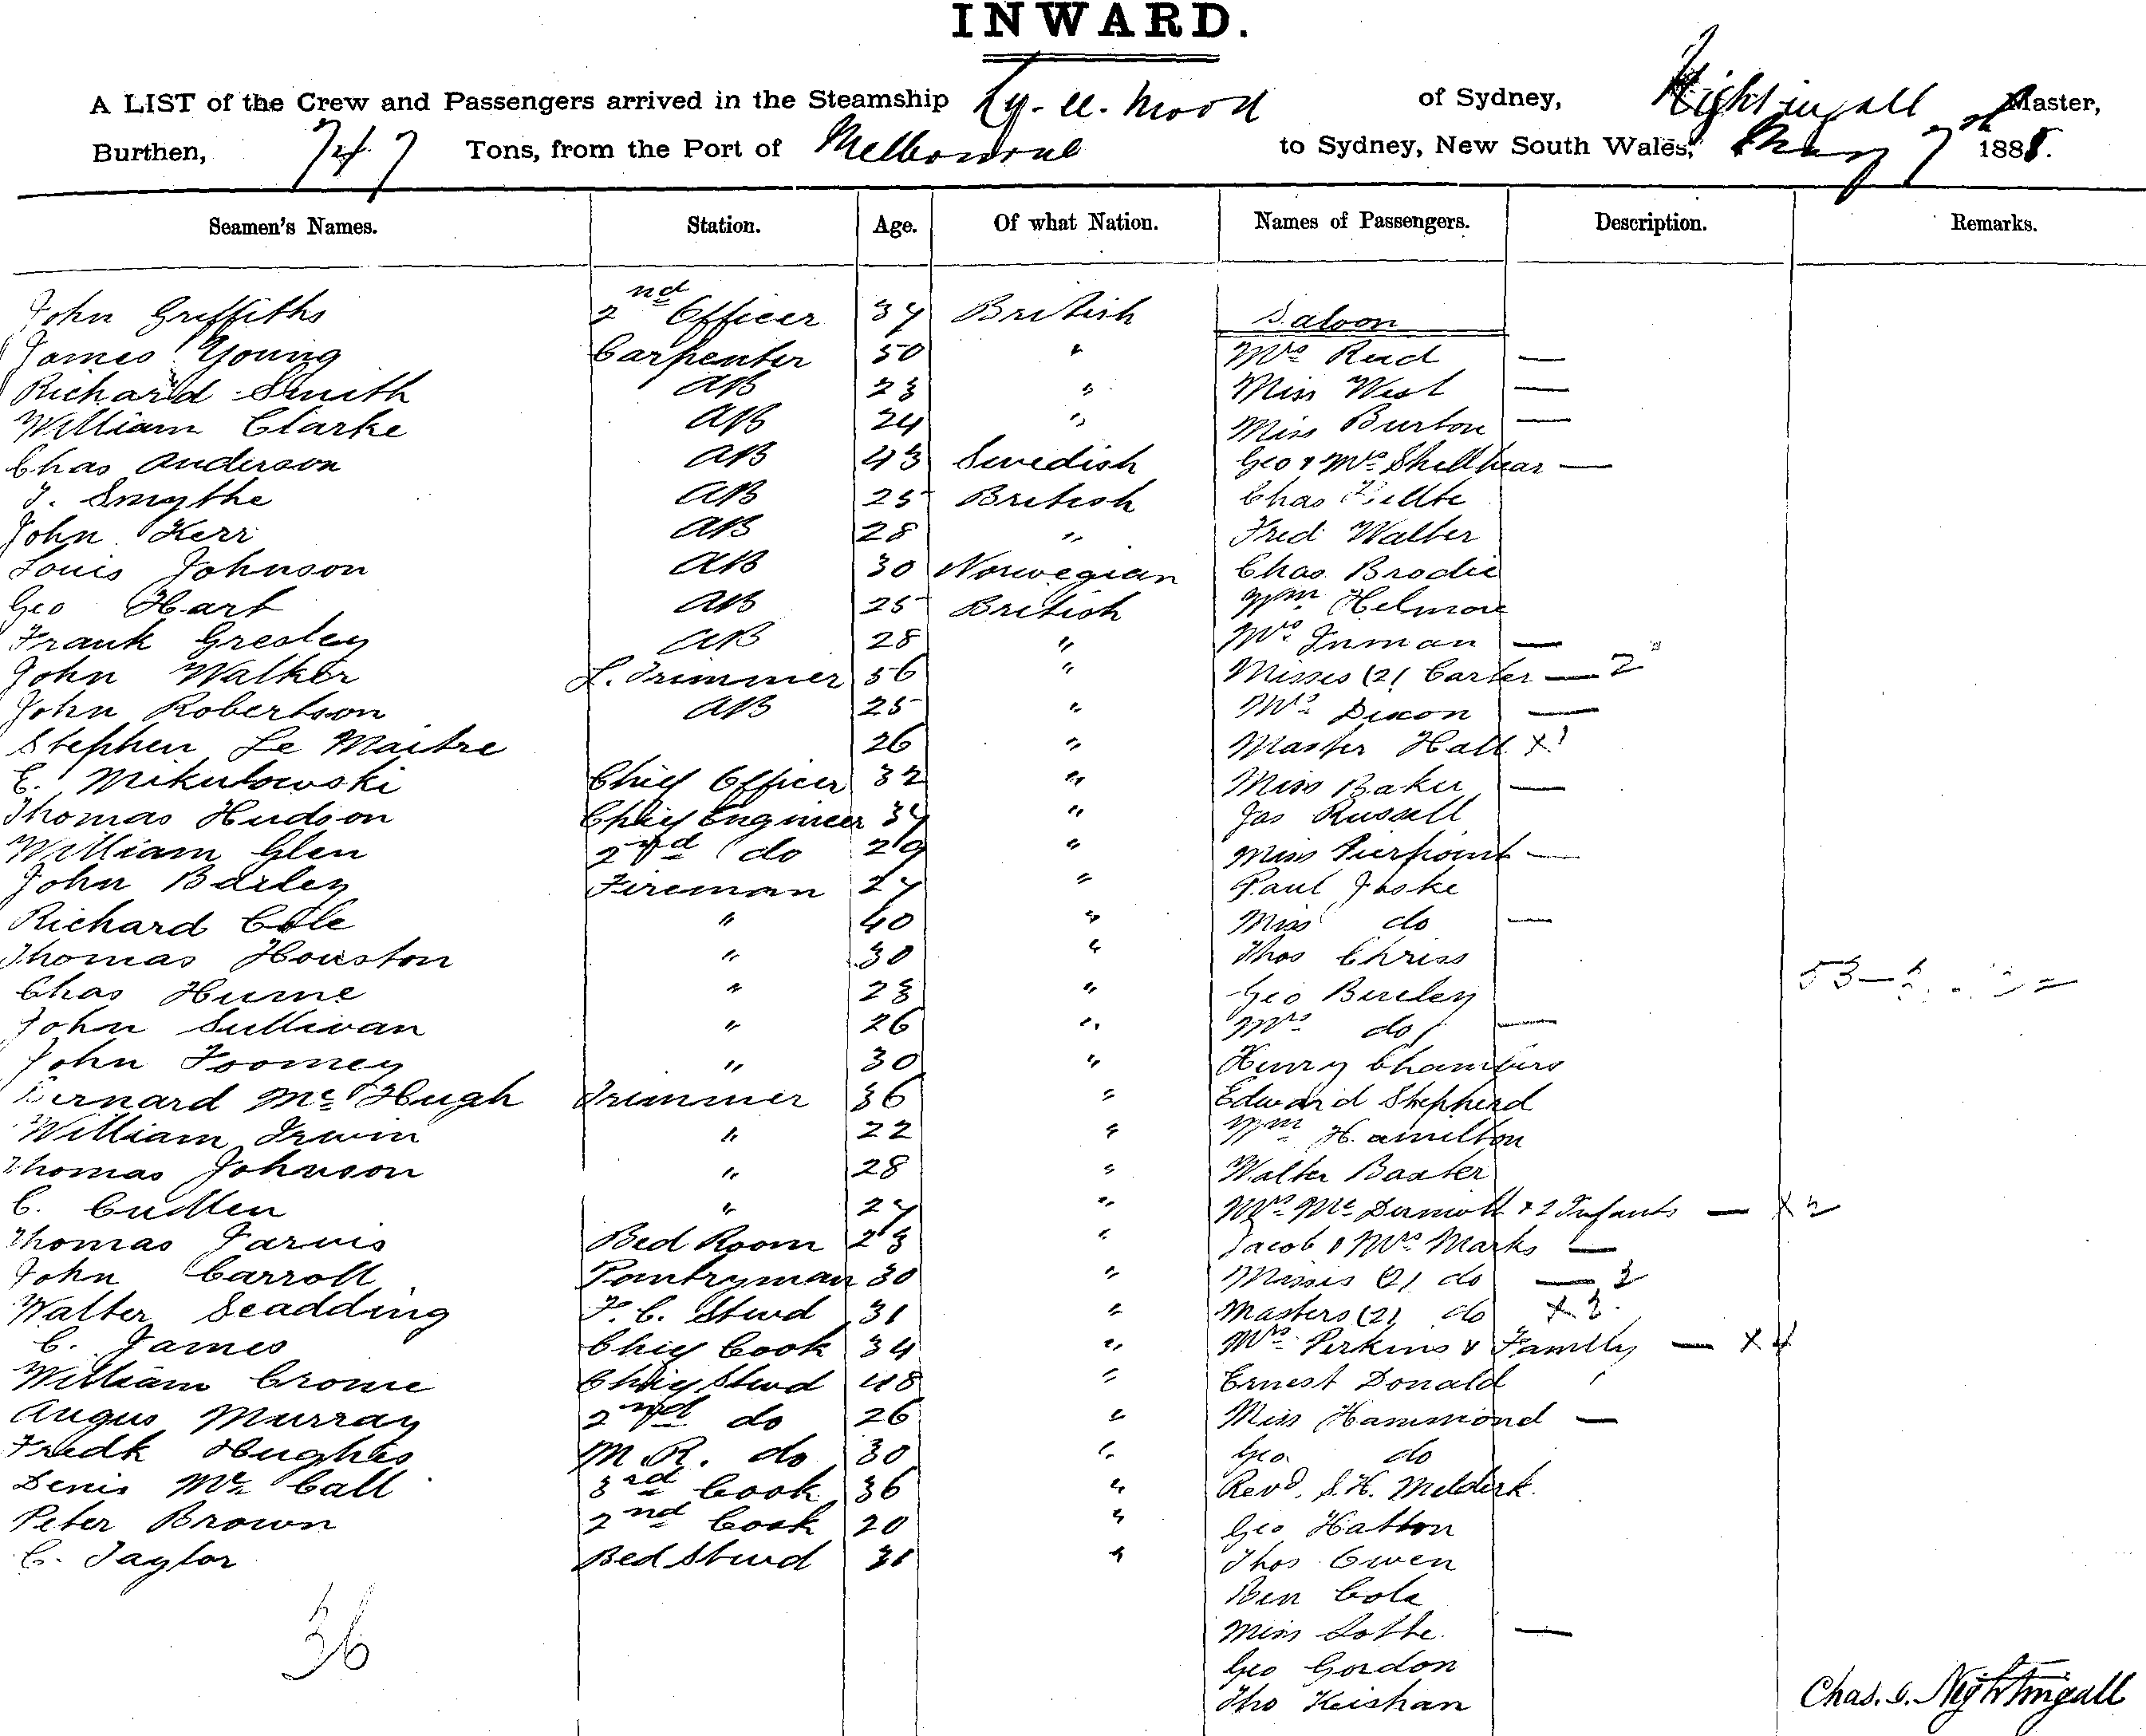 INWARD.
A LIST of the Crew and Passengers arrived in the Steamship Ly-ee-Moon of Sydney, Nightingall Master,
Burthen, 747 Tons, from the Port of Melbourne to Sydney, New South Wales, May 7 1885.
Seamen's Names. Station. Age. Of what Nation. Names of Passengers. Description. Remarks.
John Griffiths 2nd Officer 34 British Saloon
James Young Carpenter 50 " Mrs Reid —
Richard Smith AB 23 " Miss West —
William Clarke AB 24 " Miss Burton —
Chas Anderson AB 43 Swedish Geo & Mrs Shellbear —
J. Smythe AB 25 British Chas
John Kerr AB 28 " Fred Walter
Louis Johnson AB 30 Norwegian Chas Brodie
Geo Hart AB 25 British Wm Helmore
Frank Gresley AB 28 " Mrs Inman —
John Walker L. Trimmer 56 " Misses (2) Carter — 2
John Robertson AB 25 " Mrs Dixon —
Stephen Le Maitre 26 " Master Hall x1
E. Mikulowski Chief Officer 32 " Miss Baker —
Thomas Hudson Chief Engineer 34 " Jas Russell
William Glen 2nd do 29 " Miss Pierpoint —
John Bailey Fireman 27 " Paul Joske
Richard Cole " 40 " Miss do —
Thomas Houston " 30 " Thos Chriss
Chas Hume " 23 " Geo Bireley 53—
John Sullivan " 26 " Mrs do —
John Toomey " 30 " Henry Chambers
Bernard McHugh Trimmer 36 " Edward Shepherd
William Irwin " 22 " Wm Hamilton
Thomas Johnson " 28 " Walter Baxter
C. Cullen " 27 " Mrs McDermott & 2 Infants — x2
Thomas Jarvis Bed Room 23 " Jacob & Mrs Marks —
John Carroll Pantryman 30 " Misses (2) do — 2
Walter Scadding F. C. Stwd 31 " Masters (2) do x 2.
C. James Chief Cook 34 " Mrs Perkins & Family — x4
William Crome Chief Stwd 48 " Ernest Donald
Angus Murray 2nd do 26 " Miss Hammond —
Fredk Hughes M.R. do 30 " Geo. do
Denis McCall 3rd Cook 36 " Revd. S.H. Melderk.
Peter Brown 2nd Cook 20 " Geo Hatton
C. Taylor Bed Stwd 31 " Thos Owen
Ben Cole
36 Miss Lothe. —
Geo Gordon
Tho Keishan Chas. S. Nightingall